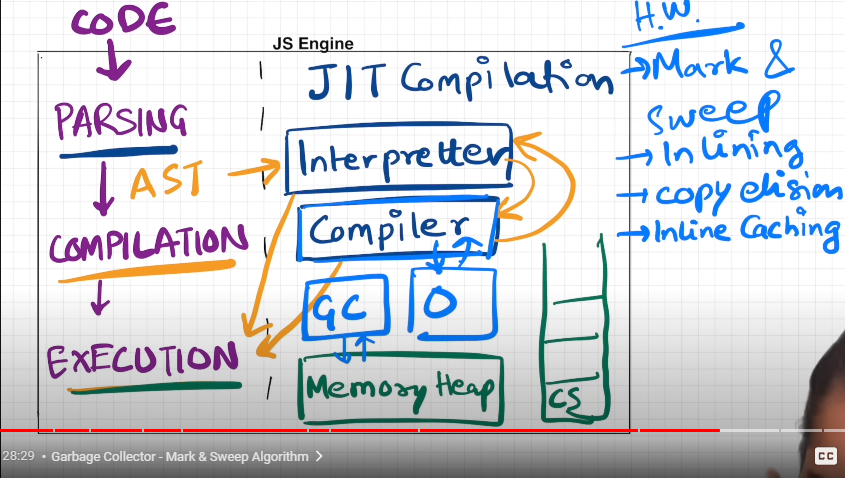 CODE
PARSING
AST
COMPILATION
EXECUTION
JS Engine
JIT Compilation
Interpretter
Compiler
GC
O
Memory Heap
CS
H.W.
→ Mark &
Sweep
→ Inlining
→ copy elision
→ Inline Caching
28:29 • Garbage Collector - Mark & Sweep Algorithm >
CC